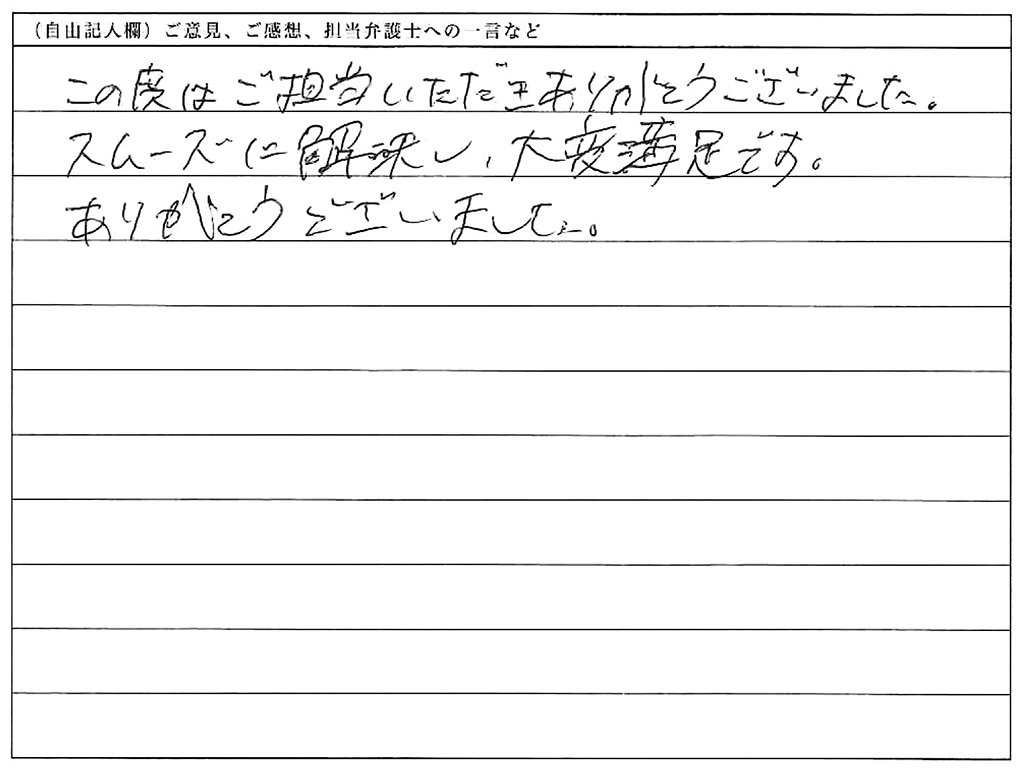 （自由記入欄）ご意見、ご感想、担当弁護士への一言など
この度はご担当いただきありがとうございました。
スムーズに解決し、大変満足です。
ありがとうございました。